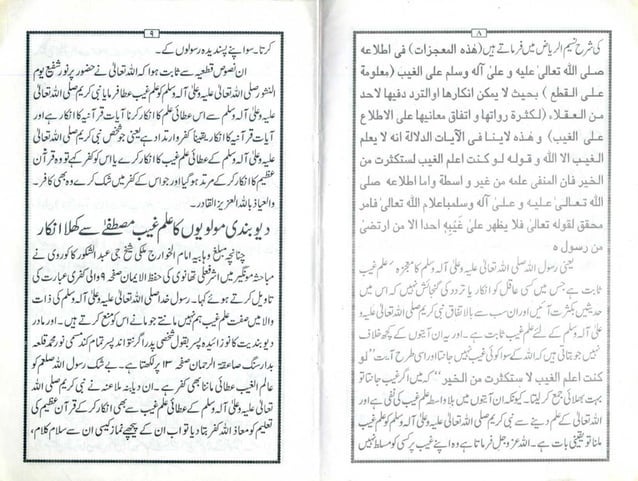 ۸
کی شرح نسیم الریاض میں فرماتے ہیں (هذه المعجزات) فی اطلاعه
صلی الله تعالیٰ علیه و علیٰ آله وسلم علی الغیب (معلومة
علی القطع) بحیث لا یمکن انکارها او التردد فیها لاحد
من العقلاء (لکثرة رواتها و اتفاق معانیها علی الاطلاع
علی الغیب) و هذه لاینا فی الآیات الدلالة انه لا یعلم
الغیب الا الله و قوله لو کنت اعلم الغیب لستکثرت من
الخیر فان المنفی علمه من غیر و اسطة واما اطلاعه صلی
الله تعالیٰ علیه و علیٰ آله وسلم باعلام الله فامر
محقق لقوله تعالیٰ فلا یظهر علی غیبه احدا الا من ارتضی
من رسول ه
یعنی رسول اللہ صلی اللہ تعالیٰ علیہ وعلیٰ آلہ وسلم کا معجزہ علم غیب
ثابت ہے جس میں کسی عاقل کو انکار یا تردد کی گنجائش نہیں کہ اس میں
حدیثیں بکثرت آئیں اور ان سب سے بالاتفاق نبی کریم صلی اللہ تعالیٰ علیہ وعلیٰ
آلہ وسلم کے لئے علم غیب ثابت ہے۔ اور یہ ان آیتوں کے کچھ خلاف
نہیں جو بتاتی ہیں کہ اللہ کے سوا کوئی غیب نہیں جانتا اور اسی طرح آیت "لو
کنت اعلم الغیب لا ستکثرت من الخیر" کہ میں اگر غیب جانتا تو
بہت بھلائی جمع کر لیتا۔ کیونکہ ان آیتوں میں بلا واسطہ علم غیب کی نفی ہے اور
اللہ تعالیٰ کے علم دینے سے نبی کریم صلی اللہ تعالیٰ علیہ وعلیٰ آلہ وسلم کو علم
ملنا تو یقینی بات ہے۔ اللہ عزوجل فرماتا ہے وہ اپنے غیب پر کسی کو مسلط نہیں
۹
کرتا۔ سوا اپنے پسندیدہ رسولوں کے۔
ان نصوص قطعیہ سے ثابت ہوا کہ اللہ تعالیٰ نے حضور پر نور شفیع یوم
النشور صلی اللہ تعالیٰ علیہ وعلیٰ آلہ وسلم کو علم غیب عطا فرمایا نبی کریم صلی اللہ تعالیٰ
علیہ وعلیٰ آلہ وسلم سے اس عطائی علم کا انکار کرنا آیات قرآنیہ کا انکار ہے اور
آیات قرآنیہ کا انکار یقینا کفر وارتداد ہے یعنی جو شخص نبی کریم صلی اللہ تعالیٰ علیہ
وعلیٰ آلہ وسلم کے عطائی علم غیب کا انکار کرے یا اس کو کفر کہے تو وہ قرآن
عظیم کا انکار کر کے مرتد ہو گیا اور جو اس کے کفر میں شک کرے وہ بھی کافر۔
والعیاذ باللہ العزیز القادر۔
دیوبندی مولویوں کا علم غیب مصطفٰے سے کھلا انکار
چنانچہ مبلغ وہابیہ امام الخوارج ملکی شیخ جی عبد الشکور کاکوروی نے
مباحثہ مونگیر میں اشرفعلی تھانوی کی حفظ الایمان صفحہ ۹ والی کفری عبارت کی
تاویل کرتے ہوئے کہا۔ رسول خدا صلی اللہ تعالیٰ علیہ وعلیٰ آلہ وسلم کی ذات
والا میں صفت علم غیب ہم نہیں مانتے جو مانے اس کو منع کرتے ہیں۔ اور مادر
دیوبندیت کا نوزائیدہ پسر بقول شخصے پدر اگر نتواند پسر تمام کند یعنی نور محمد قلعہ
بدار سنگ صاعقۃ الرحمان صفحہ ۱۳ پر لکھتا ہے۔ بے شک رسول صلعم کو
عالم الغیب عطائی ماننا بھی کفر ہے۔ ان دیابنہ ملاعنہ نے نبی کریم صلی اللہ
تعالیٰ علیہ وعلیٰ آلہ وسلم کے عطائی علم غیب سے بھی انکار کر کے قرآن عظیم کی
تعلیم کو معاذ اللہ کفر بتا دیا تو اب ان کے پیچھے نماز کیسی ان سے سلام کلام،